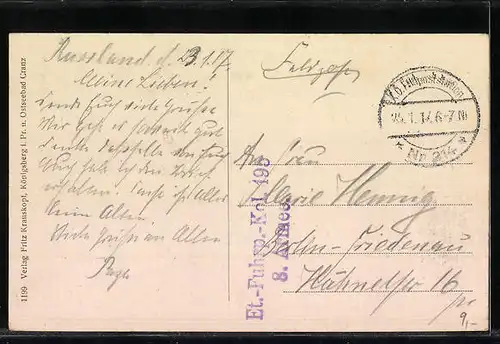 Russland d. 23.1.17.
Meine Lieben!
Sende Euch viele Grüsse
Mir geht es soweit gut
Denke dasselbe von Euch
Auch habe ich den Brief
erhalten. Sonst ist Alles
beim Alten.
Viele Grüsse an Alle
Feldpost
K. D. Feldpoststation
25.1.17.6-7.N.
* Nr. 214 *
An Frau
Marie Hennig
Berlin-Friedenau
Hähnelstr 16
9,-
Et.-Fuhrp.-Kol. 195
8. Armee.
1199 Verlag Fritz Krauskopf, Königsberg i. Pr. u. Ostseebad Cranz